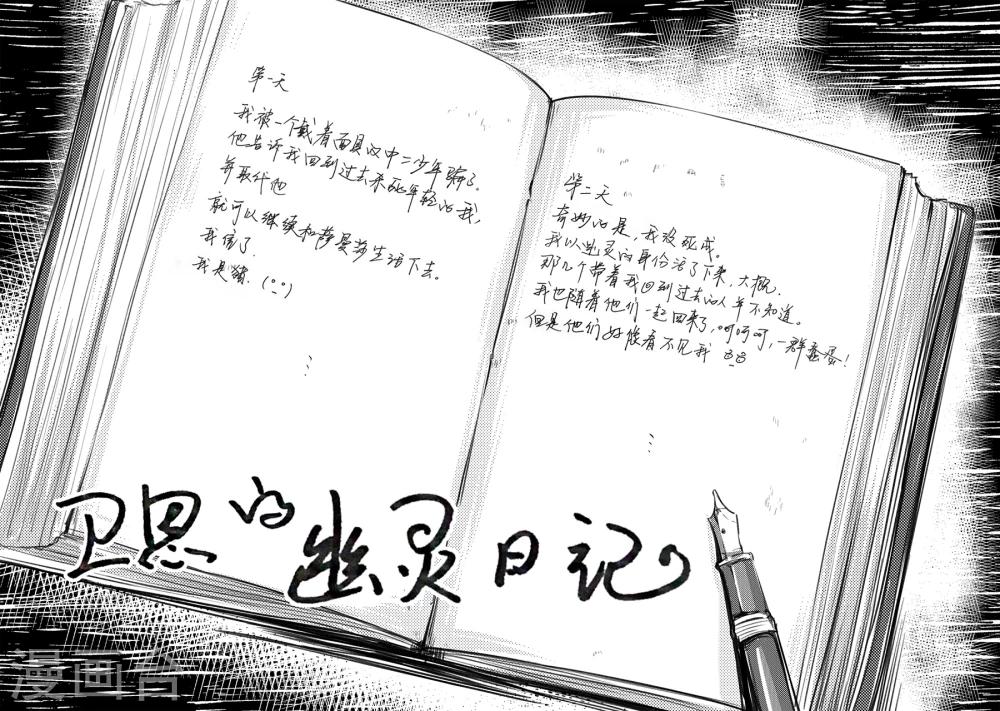 第一天
我被一个戴着面具的中二少年骗了。
他告诉我回到过去杀死年轻的我,
并取代他
就可以继续和萨曼莎生活下去。
我信了.
我是猪.
第二天
奇妙的是,我没死成。
我以幽灵的身份活了下来,大概.
那几个带着我回到过去的人并不知道。
我也随着他们一起回来了,呵呵呵,一群蠢蛋!
但是他们好像看不见我
卫思的幽灵日记
漫画台